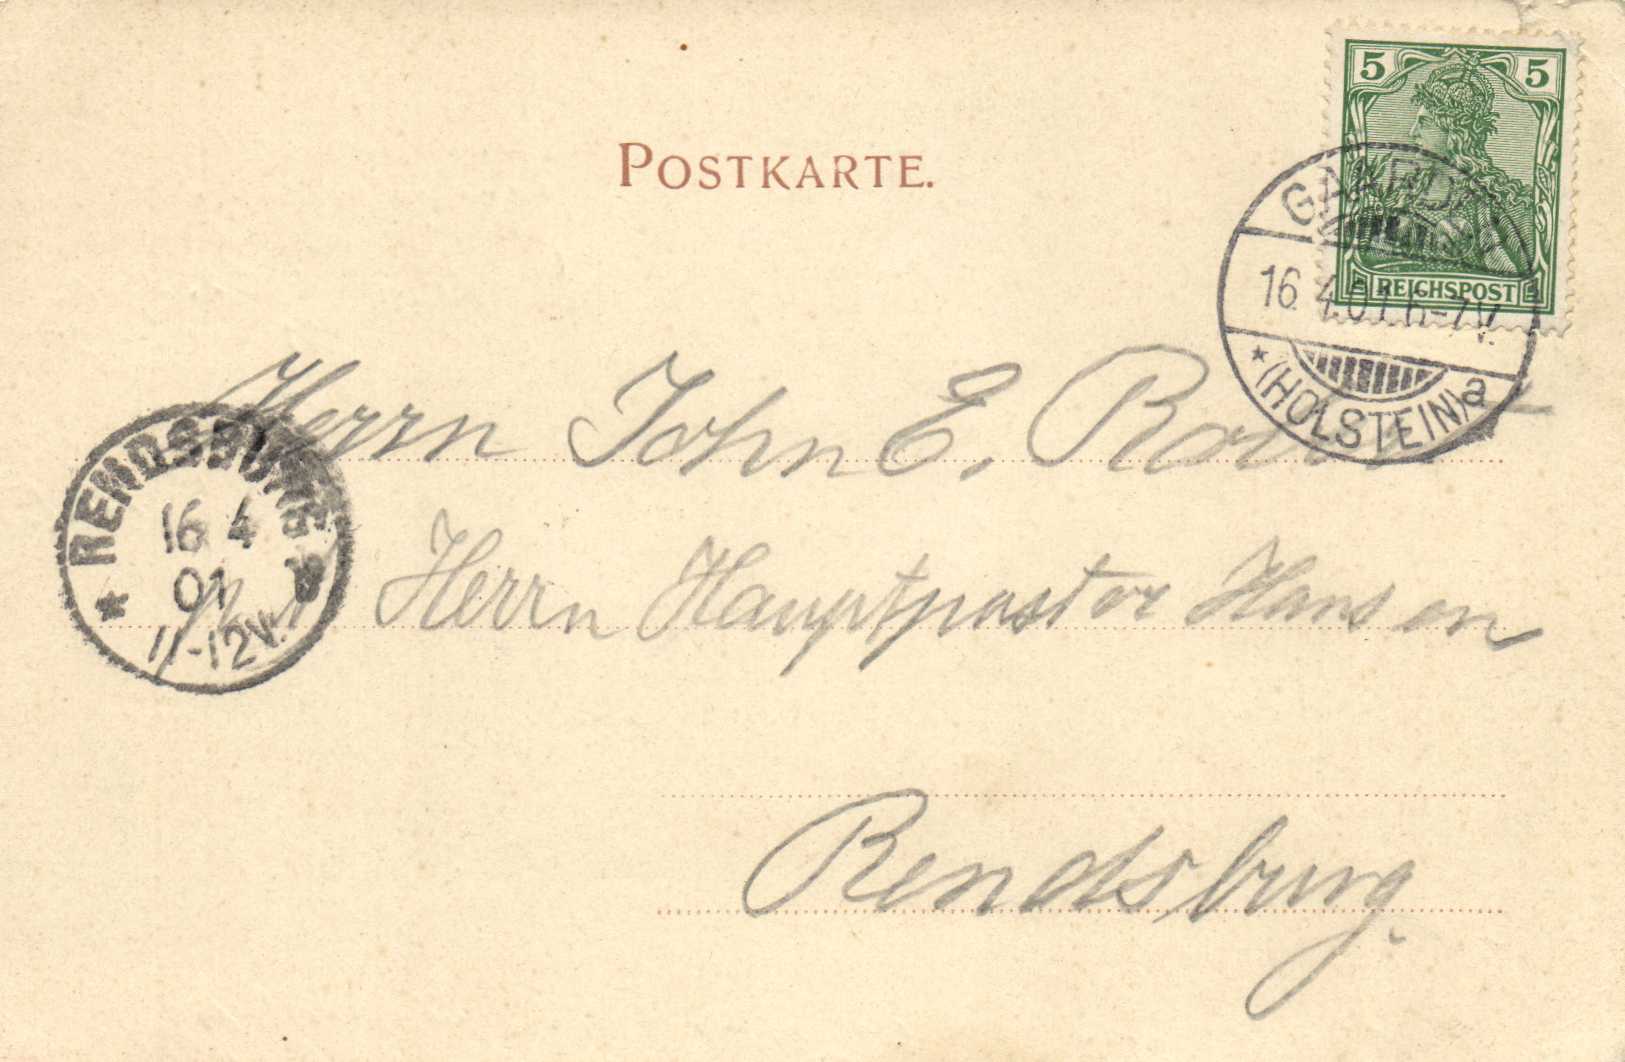 5 5
POSTKARTE.
REICHSPOST
GAARDEN
16.4.01.6-7V.
* (HOLSTEIN) a
Herrn John E.
RENDSBURG
16 4
01
11-12V.
Herrn Hauptpastor Hansen
Rendsburg.